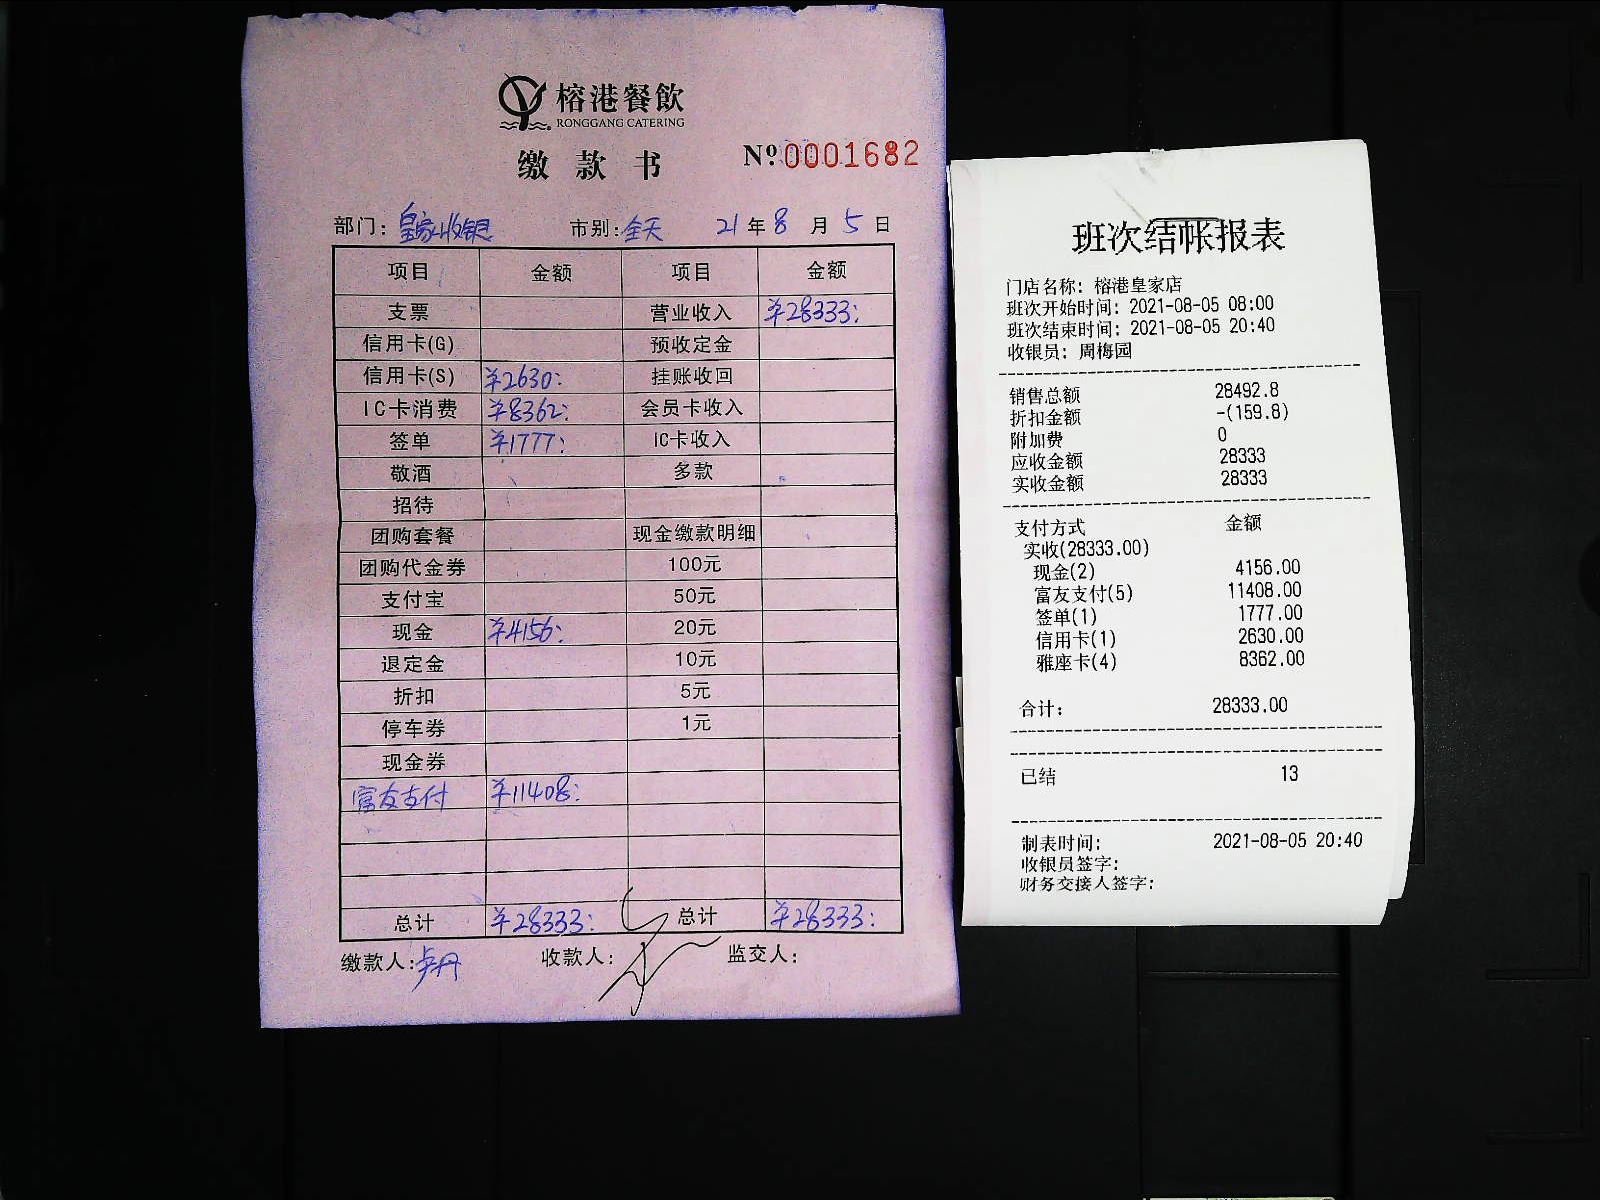 榕港餐飲
RONGGANG CATERING
缴款书
Nº 0001682
部门：皇家收银 市别：全天 21年8月5日
项目 金额 项目 金额
支票 营业收入 ¥28333:
信用卡(G) 预收定金
信用卡(S) ¥2630: 挂账收回
IC卡消费 ¥8362: 会员卡收入
签单 ¥1777: IC卡收入
敬酒 多款
招待
团购套餐 现金缴款明细
团购代金券 100元
支付宝 50元
现金 ¥4156: 20元
退定金 10元
折扣 5元
停车券 1元
现金券
富友支付 ¥11408:
总计 ¥28333: 总计 ¥28333:
缴款人：卢丹 收款人： 监交人：
班次结帐报表
门店名称：榕港皇家店
班次开始时间：2021-08-05 08:00
班次结束时间：2021-08-05 20:40
收银员：周梅园
销售总额 28492.8
折扣金额 -(159.8)
附加费 0
应收金额 28333
实收金额 28333
支付方式 金额
实收(28333.00)
现金(2) 4156.00
富友支付(5) 11408.00
签单(1) 1777.00
信用卡(1) 2630.00
雅座卡(4) 8362.00
合计： 28333.00
已结 13
制表时间： 2021-08-05 20:40
收银员签字：
财务交接人签字：